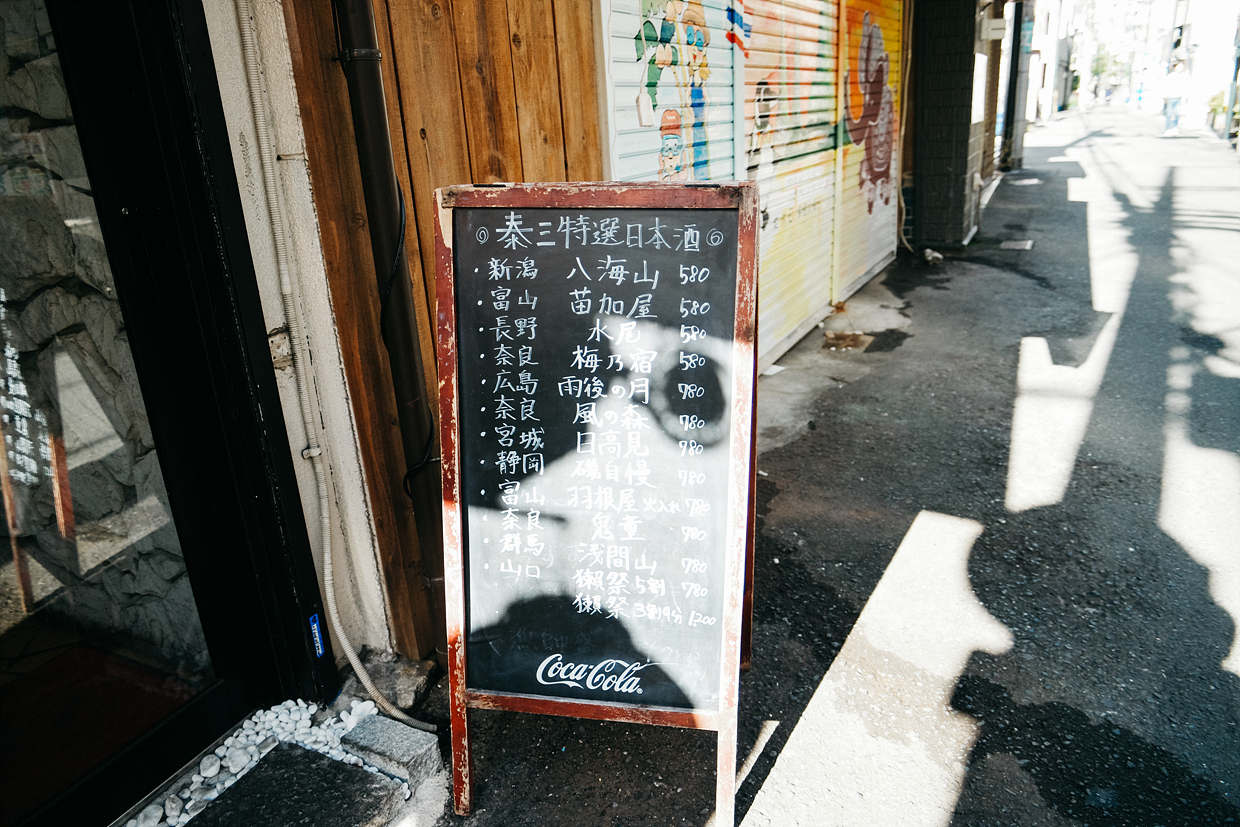 泰三特選日本酒
・新潟 八海山 580
・富山 苗加屋 580
・長野 水尾 580
・奈良 梅乃宿 580
・広島 雨後の月 780
・奈良 風の森 780
・宮城 日高見 780
・静岡 磯自慢 780
・富山 羽根屋 火入れ 780
・奈良 鬼童 780
・群馬 浅間山 780
・山口 獺祭 5割 780
獺祭 3割9分 1,200
Coca-Cola